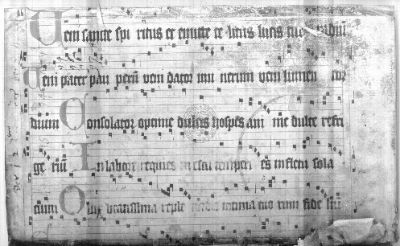 Veni sancte spi ritus et emitte ce litus lucis tue radiu
Veni pater pau perū veni dator mu nerum veni lumen cor
dium Consolator optime dulcis hospes ani me dulce refri
ge riū In labore requies in estu temperi es in fletu sola
cium O lux beatissima reple cordis intima tuo rum fide liu